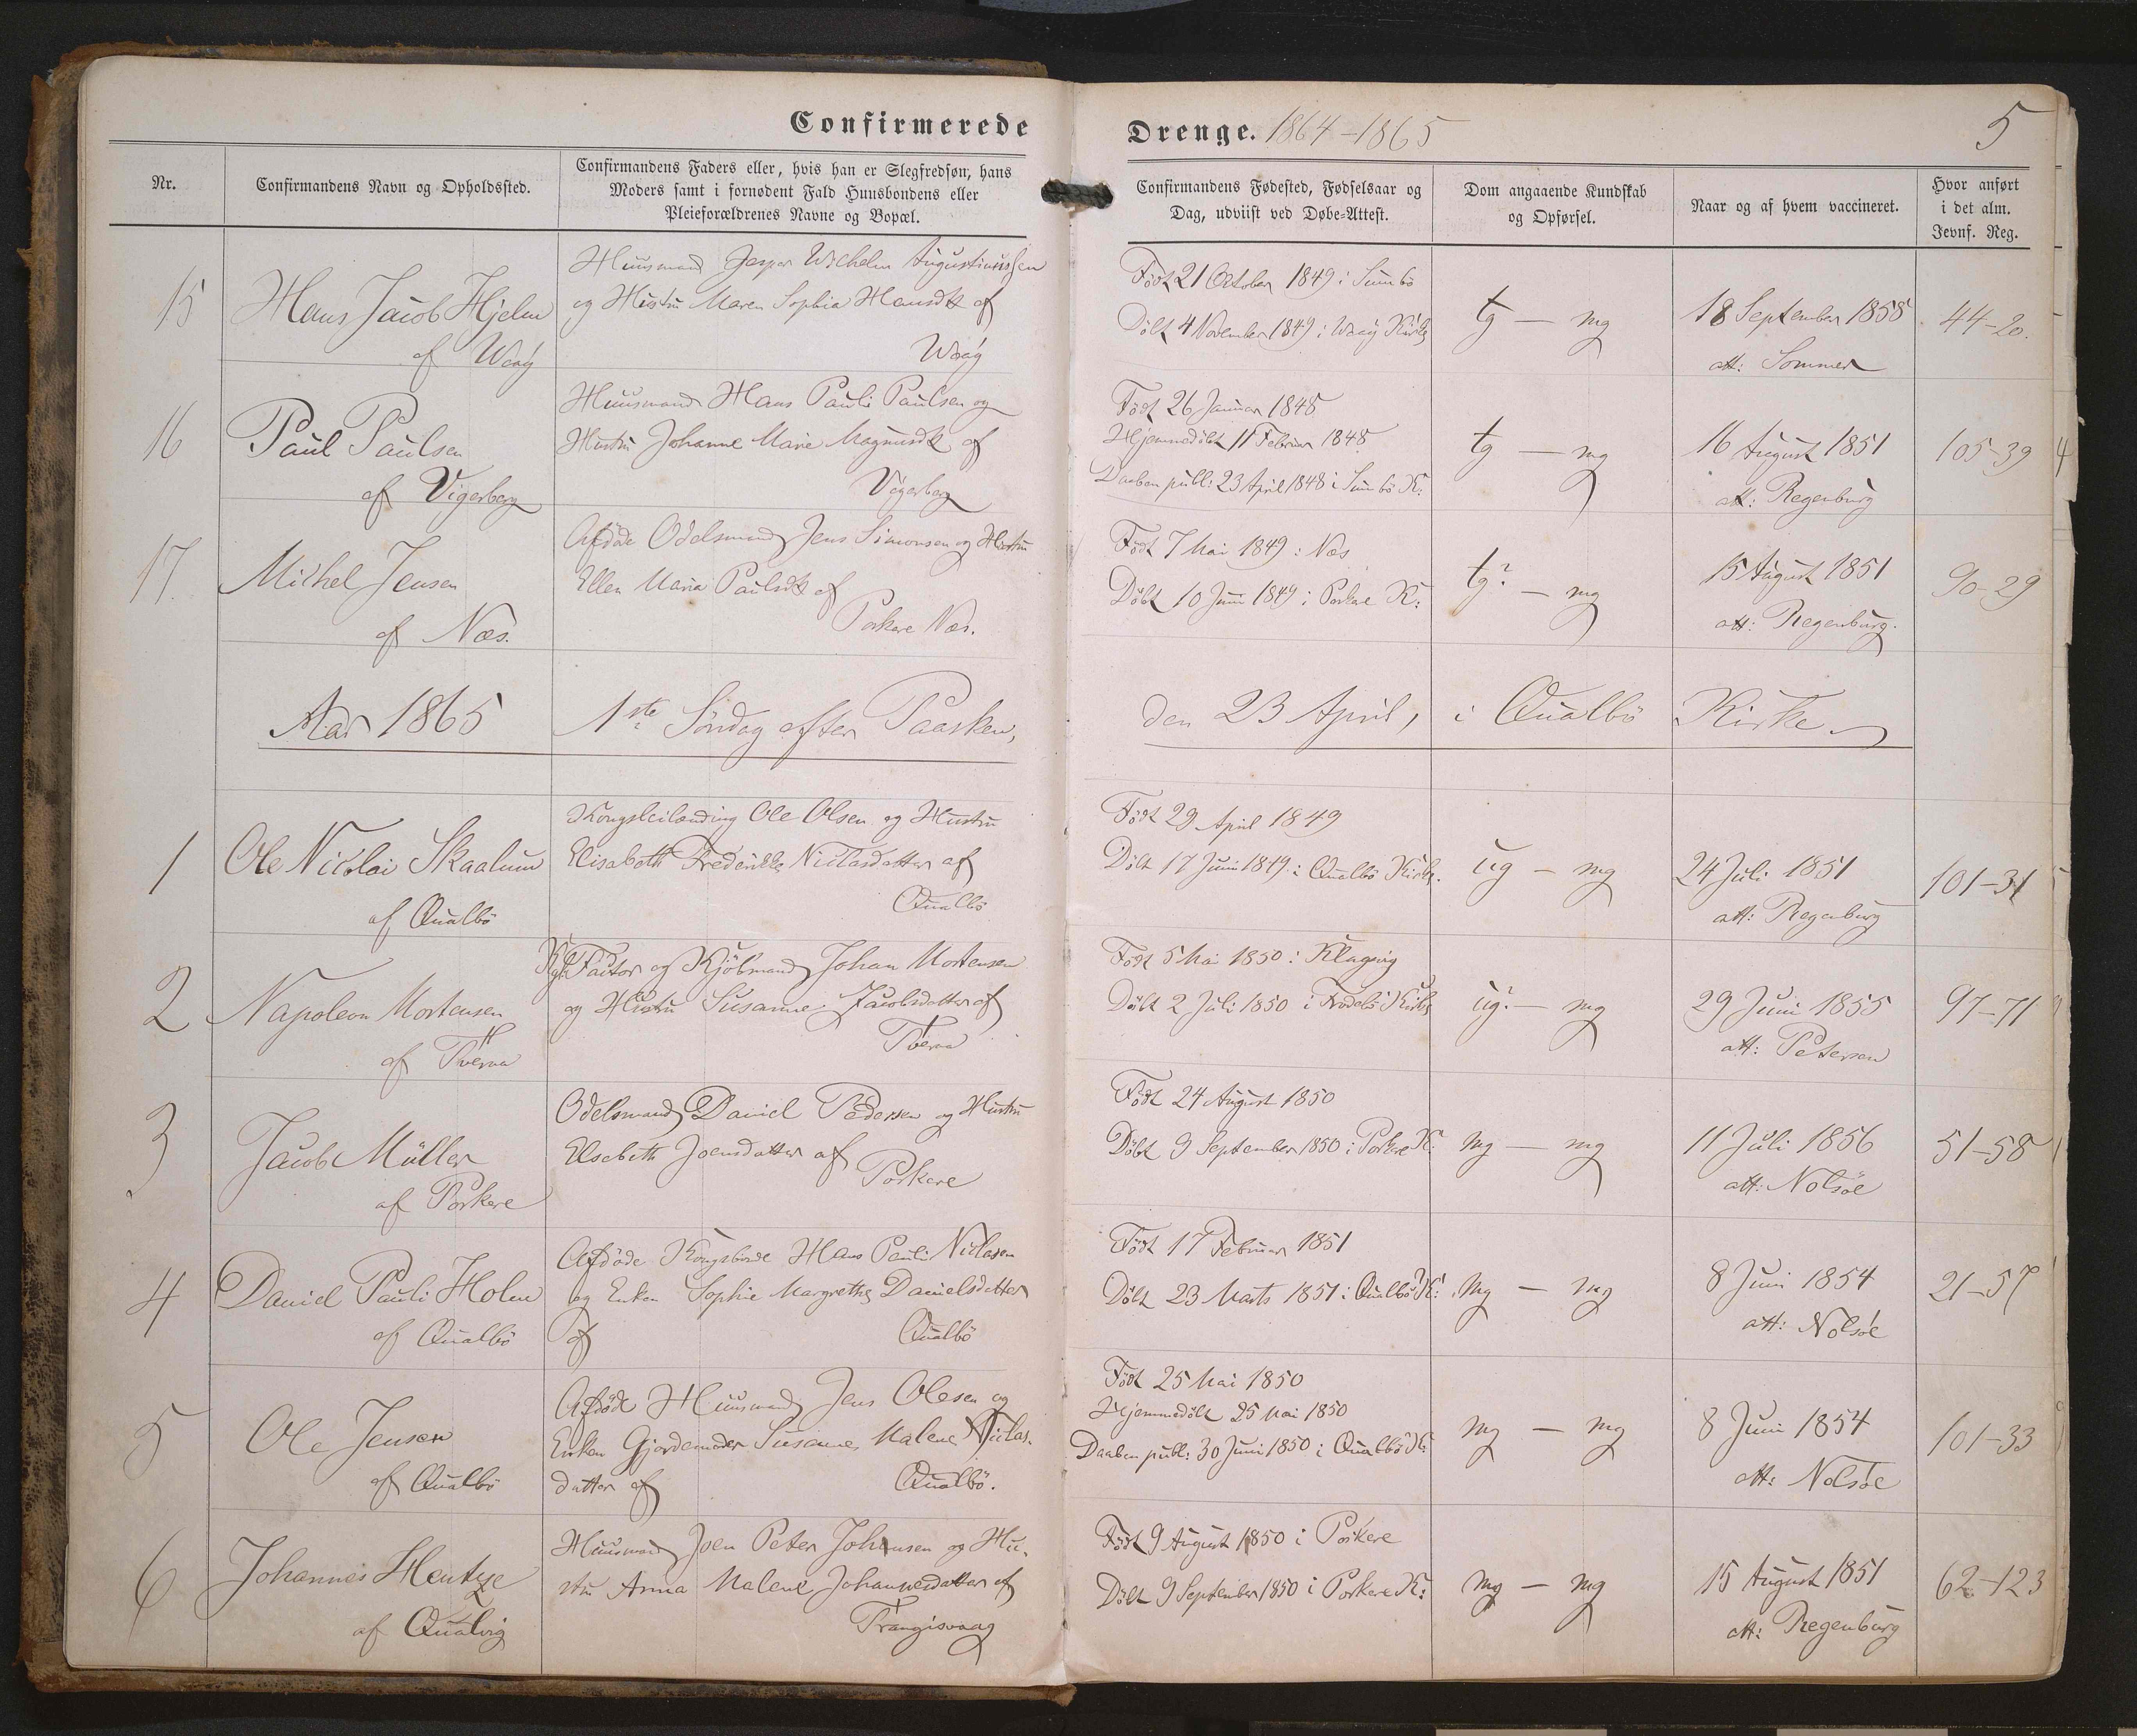 Confirmerede
Drenge. 1864-1865
5
Nr.
Confirmandens Navn og Opholdssted.
Confirmandens Faders eller, hvis han er Slegfredsøn, hans
Moders samt i fornødent Fald Huusbondens eller
Pleieforældrenes Navne og Bopæl.
Confirmandens Fødested, Fødselsaar og
Dag, udviist ved Døbe-Attest.
Dom angaaende Kundskab
og Opførsel.
Naar og af hvem vaccineret.
Hvor anført
i det alm.
Jevnf. Reg.
15
Hans Jacob Hjelm
af Waag
Huusmand Jesper Wilhelm Augustinussen
og Hustru Maren Sophia Hansdtt af
Waag
Født 21 October 1849 i Sumbø
Döbt 4 November 1849 i Waag Kirke
tg — mg
18 September 1858
att: Sommer
44-20.
16
Paul Paulsen
af Vigerberg
Huusmand Hans Pauli Paulsen og
Hustru Johanne Marie Magnusdtt af
Vigerberg
Födt 26 Januar 1848
Hjemmedöbt 11 Februar 1848
Daaben publ: 23 April 1848 i Sumbö K:
tg — mg
16 August 1851
att: Regenburg
105-39
17.
Michel Jensen
af Næs.
Afdöde Odelsmand Jens Simonsen og Hustru
Ellen Maria Paulsdtt af
Porkere Næs.
Födt 7 Mai 1849 i Næs
Döbt 10 Juni 1849 i Porkere K:
tg? — mg
15 August 1851
att: Regenburg.
90-29
Aar 1865
1ste Söndag efter Paasken,
den 23 April,
i Qualbö
Kirke
1
Ole Nicolai Skaalum
af Qualbö
Kongsleilænding Ole Olsen og Hustru
Elisabeth Frederikke Niclasdatter af
Qualbö
Födt 29 April 1849
Döbt 17 Juni 1849 i Qualbö Kirke.
ug — mg
24 Juli 1851
att: Regenburg
101-31
2
Napoleon Mortensen
af Tveraa
Kgl. Factor og Kjöbmand Johan Mortensen
og Hustru Susanne Jacobsdatter af
Tveraa
Födt 5 Mai 1850 i Klagsvig
Döbt 2 Juli 1850 i Kirke
ug? — mg
29 Juni 1855
att: Petersen
97-71
3
Jacob Müller
af Porkere
Odelsmand Daniel Pedersen og Hustru
Elsebeth Joensdatter af
Porkere
Födt 24 August 1850
Döbt 9 September 1850 i Porkere K:
mg — mg
11 Juli 1856
att: Nolsöe
51-58
4
Daniel Pauli Holm
af Qualbö
Afdöde Kongsbonde Hans Pauli Niclasen
og Enken Sophie Margrethe Danielsdatter
af Qualbö
Födt 17 Februar 1851
Döbt 23 Marts 1851 i Qualbö K:
mg — mg
8 Juni 1854
att: Nolsöe
21-57
5
Ole Jensen
af Qualbö
Afdöde Huusmand Jens Olesen og
Enken Gjordemoder Susanne Malene Niclas-
datter af Qualbö.
Födt 25 Mai 1850
Hjemmedöbt 25 Mai 1850
Daaben publ: 30 Juni 1850 i Qualbö K:
mg — mg
8 Juni 1854
att: Nolsöe
101-33
6
Johannes Hentze
af Qualvig
Huusmand Joen Peter Johansen og Hu-
stru Anna Malene Johannesdatter af
Trangisvaag
Födt 9 August 1850 i Porkere
Döbt 9 September 1850 i Porkere K:
mg — mg
15 August 1851
att: Regenburg
62-123